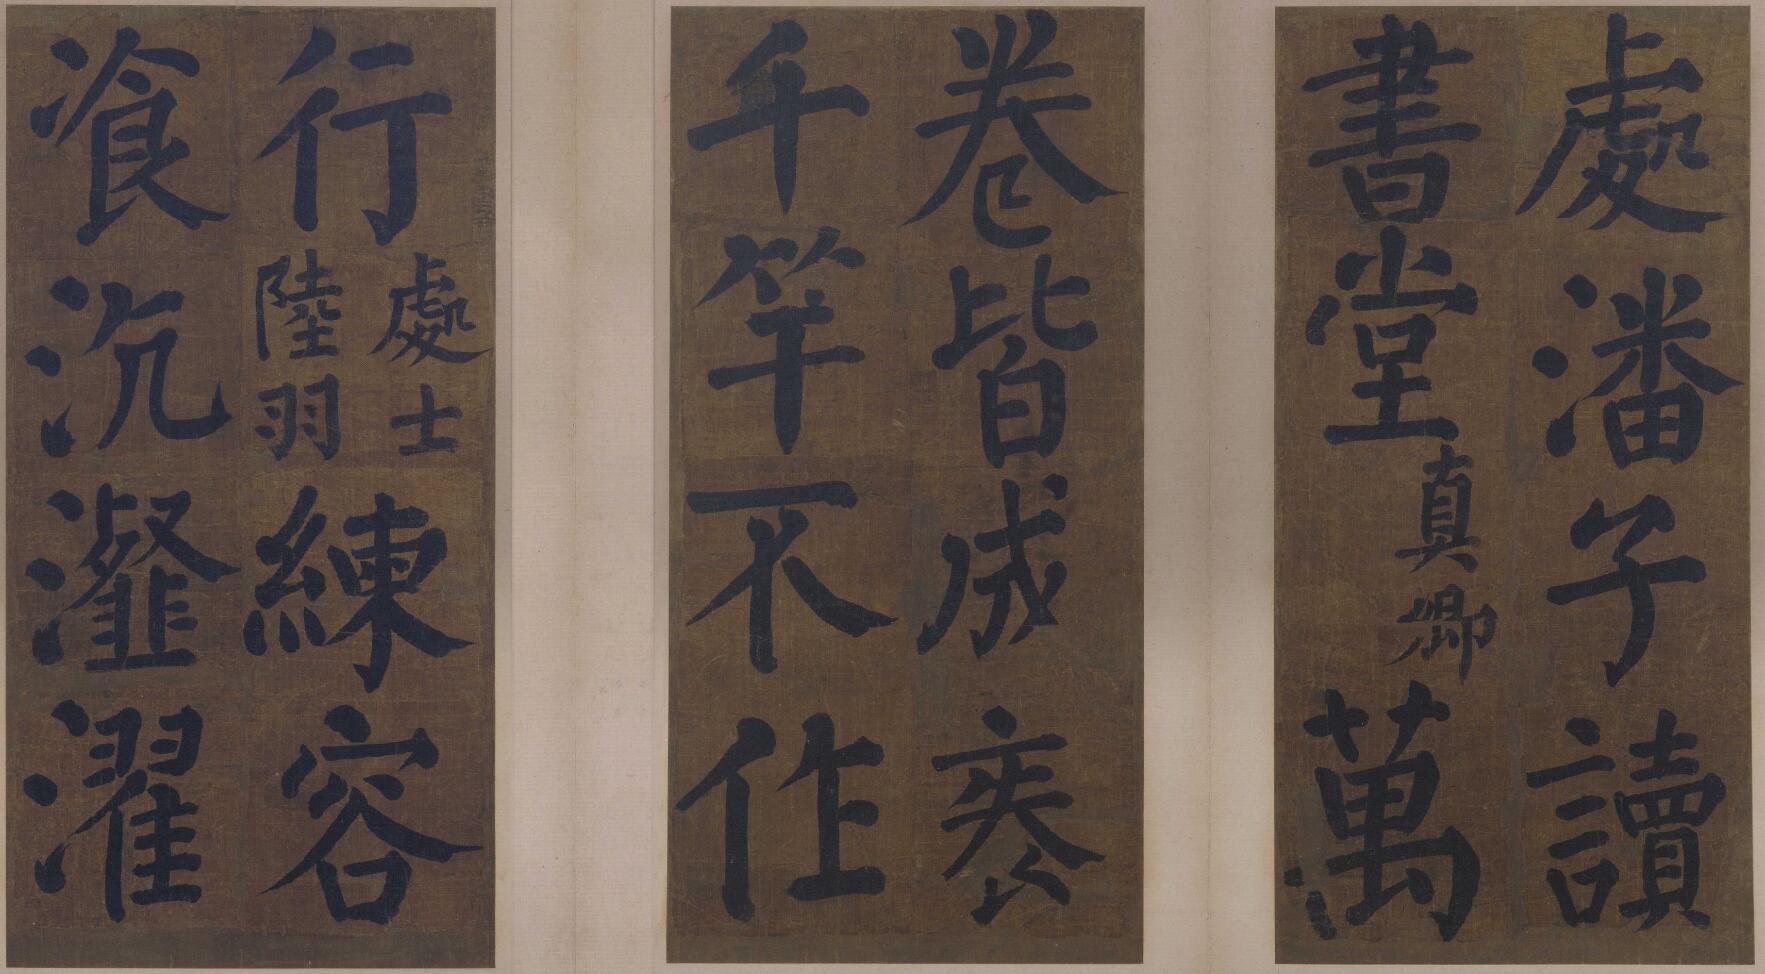 處潘子讀
書堂真卿萬
卷皆成袠
千竿不作
行處士陸羽練容
飡沆瀣濯